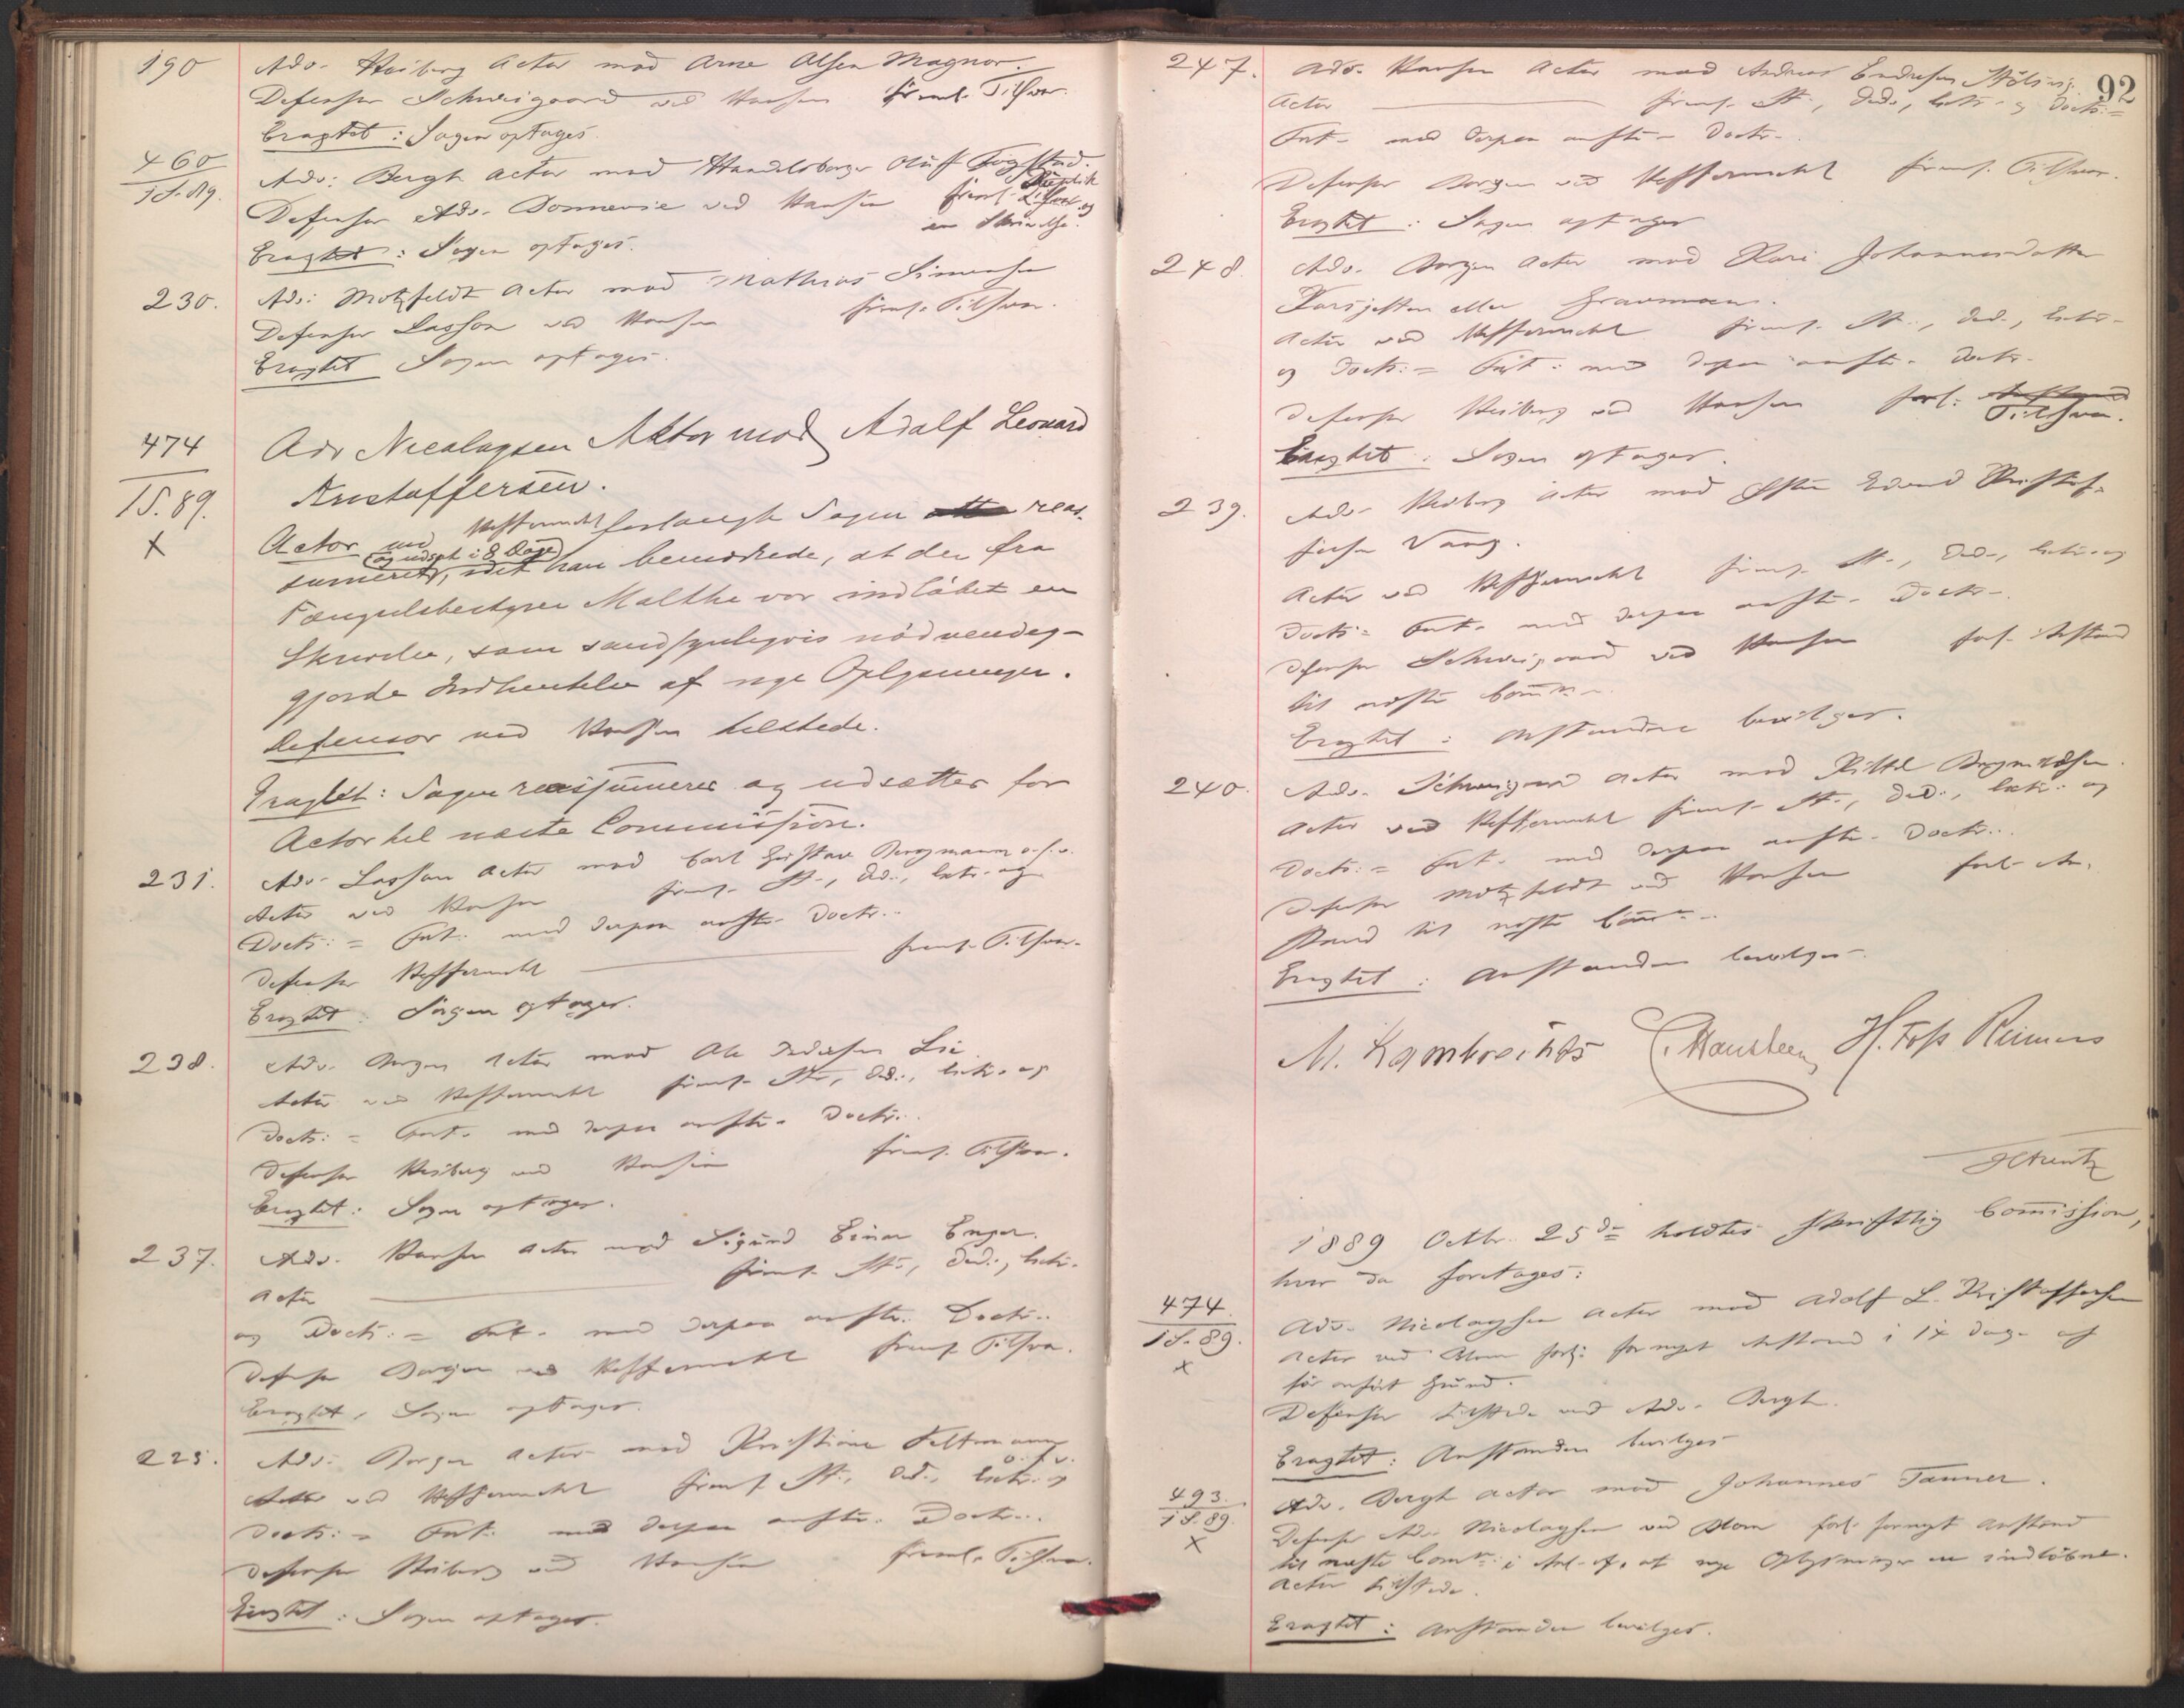 190 Adv. Heiberg Actor mod Arne Olsen Magnor.
Defensor Schweigaard ved Hansen freml. Tilsvar.
Eragtet: Sagen optages.
460
1S.89. Adv. Bergh Actor mod Handelsborger Oluf
Defensor Adv. ved Hansen freml. Duplik og
en Skrivelse.
Eragtet: Sagen optages.
230. Adv: Motzfeldt Actor mod Mathias Simensen
Defensor Lasson ved Hansen freml. Tilsvar.
Eragtet Sagen optages.
474
1S.89.
x
Adv Nicolaysen Aktor mod Adolf Leonard
Kristoffersen.
Actor ved forlangte Sagen reas-
sumeret, og udsat i 8 Dage idet han bemærkede, at der fra
Fængselsbestyrer Malthe var indløbet en
Skrivelse, som sandsynligvis nødvendig-
gjorde Indhentelse af nye Oplysninger.
Defensor ved Hansen tilstede.
Eragtet: Sagen reassumeres og udsættes for
Actor til næste Commission.
231. Adv. Lasson Actor mod Carl Gustav Bergmann o.f.v.
Actor ved Hansen freml. St., Ded., Extr. og
Doctr: = Fort. med derpaa anfte. Doctr..
Defensor freml. Tilsvar.
Eragtet: Sagen optages.
238. Adv. Borgen Actor mod Ole Lie
Actor ved freml. St., Ded., Extr. og
Doctr: = Fort. med derpaa anfte. Doctr..
Defensor Heiberg ved Hansen freml. Tilsvar.
Eragtet: Sagen optages.
237. Adv. Hansen Actor mod Sigurd Einar Enger.
Actor freml. St., Ded., Extr.
og Doctr: = Fort. med derpaa anfte. Doctr..
Defensor Borgen ved freml. Tilsvar.
Eragtet: Sagen optages.
225. Adv: Borgen Actor mod Kristine Feltmann
o.f.v.
Actor ved freml. St., Ded., Extr. og
Doctr: = Fort. med derpaa anfte. Doctr..
Defensor Heiberg ved Hansen freml. Tilsvar.
Eragtet: Sagen optages.
92
247. Adv. Hansen Actor mod Andreas Endresen
Actor freml. St., Ded., Extr. og Doctr: =
Fort. med derpaa anfte. Doctr..
Defensor Borgen ved freml. Tilsvar.
Eragtet: Sagen optages
248. Adv. Borgen Actor mod Kari Johannesdatter
eller Graumoen.
Actor ved freml. St., Ded., Extr.
og Doctr: = Fort: med derpaa anfte. Doctr.
Defensor Heiberg ved Hansen Tilsvar.
Eragtet: Sagen optages.
239. Adv. Heiberg Actor mod Edvard Kristof-
fersen Vang.
Actor ved freml. St., Ded., Extr. og
Doctr: = Fort. med derpaa anfte. Doctr..
Defensor Schweigaard ved Hansen forl. Anstand
til næste Comm..
Eragtet: Anstanden bevilges.
240. Adv. Schweigaard Actor mod Kittil
Actor ved freml. St., Ded., Extr. og
Doctr: = Fort. med derpaa anfte. Doctr..
Defensor Motzfeldt ved Hansen forl. An-
stand til næste Comm..
Eragtet: Anstanden bevilges.
M. Lambrechts C. Hansteen H. Foss Reimers
1889 Octbr. 25de holdtes skriftlig Commission,
hvor da foretages:
474.
1S.89.
x
Adv. Nicolaysen Actor mod Adolf L. Kristoffersen
Actor ved Blom forl: fornyet Anstand i 14 Dage af
før anført Grund.
Defensor tilstede ved Adv. Bergh.
Eragtet: Anstanden bevilges
493.
1S.89.
x
Adv. Bergh Actor mod Johannes Tanner.
Defensor Adv. Nicolaysen ved Blom forl. fornyet Anstand
til næste Comm. i Anl. af, at nye Oplysninger er indløbne.
Actor tilstede.
Eragtet: Anstanden bevilges.